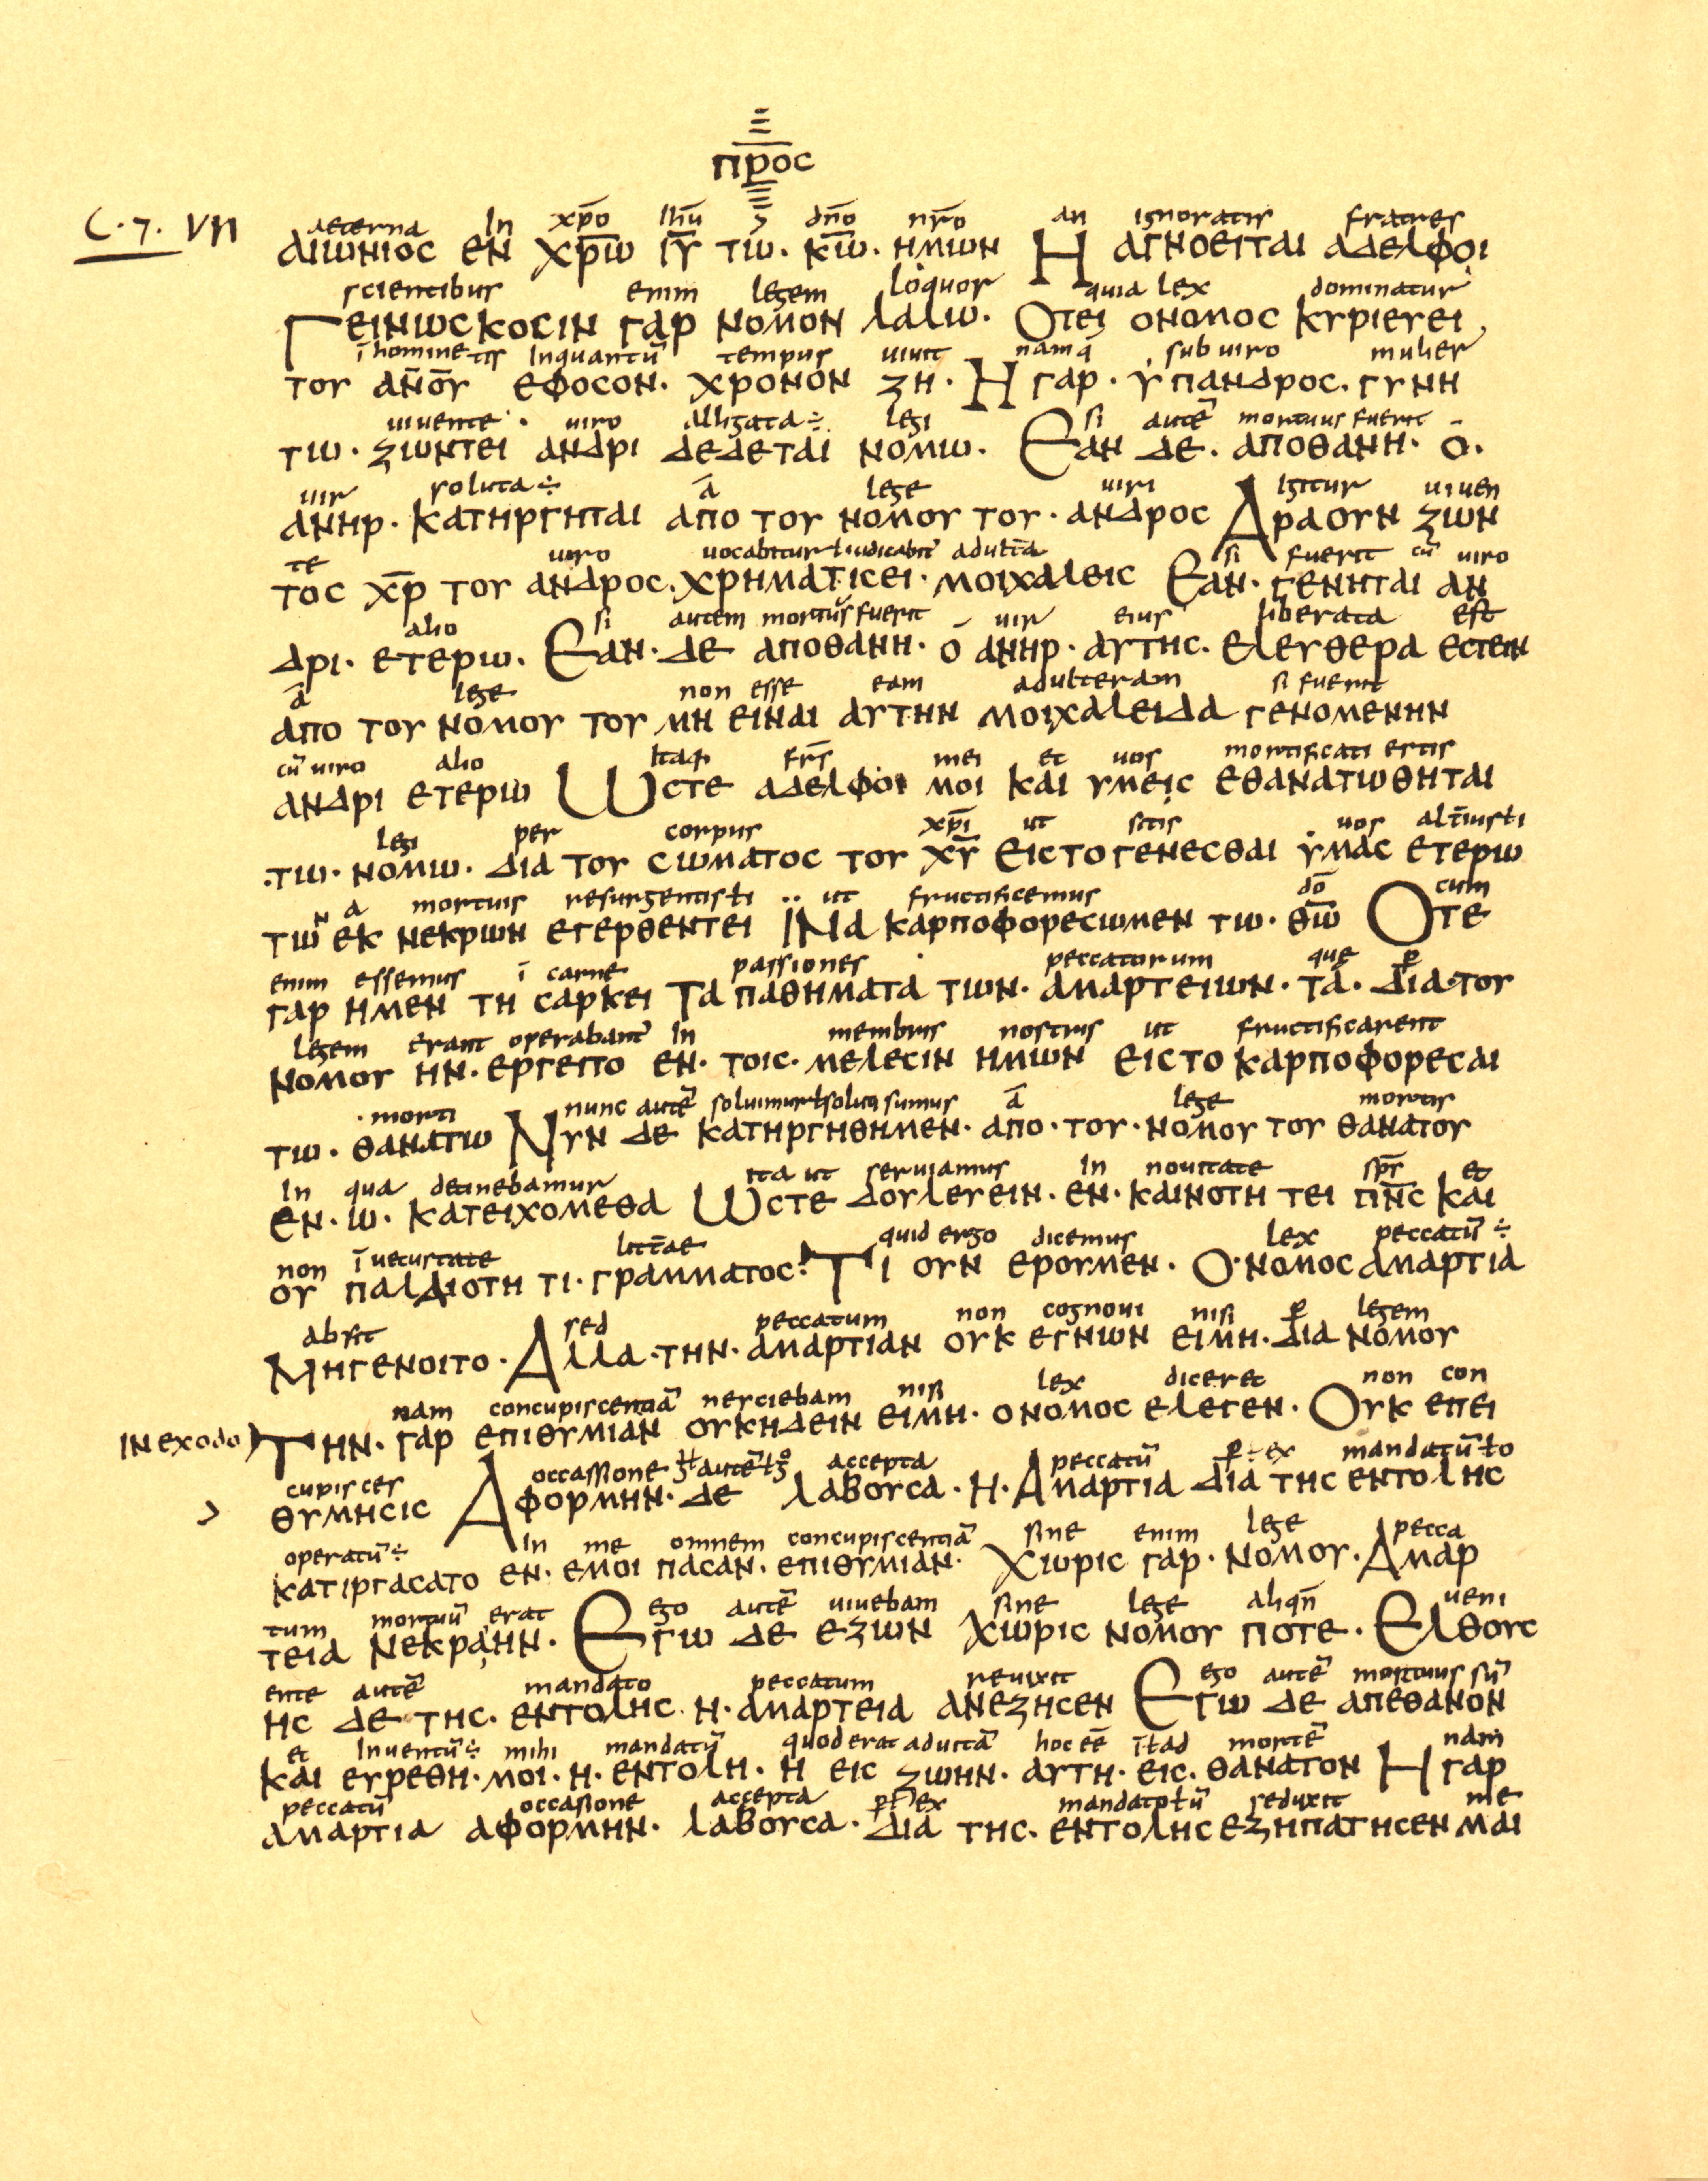 προς
C. 7. VII
aeterna In xp̄o Ih̄u dn̄o nr̄o an ignoratis fratres
αιωνιος εν χρ̅ω ιυ̅ τω. κω̅. ημων Η αγνοειται αδελφοι
scientibus enim legem loquor quia lex dominatur
Γεινωσκοσιν γαρ νομον λαλω. Οτει ονομος κυριευει
ī homine tis Inquantū tempus uiuit namq̄ sub uiro mulier
του αν̅ου̅ εφοσον. χρονον ζη. Η γαρ. υπανδρος. γυνη
uiuente uiro alligata÷ legi si autē mortuus fuerit
τω. ζωντει ανδρι δεδεται νομω. Εαν δε. αποθανη. ο.
uir soluta÷ ā lege uiri Igitur uiuen
ανηρ. κατηργηται απο του νομου του. ανδρος Αραουν ζων
te uiro uocabitur ł iudicabit̄ adult̄a si fuerit cū uiro
τος χρ̅ του ανδρος. χρηματισει. μοιχαλεις Εαν. γενηται αν
alio si autem mortuus fuerit uir eius liberata est
δρι. ετερω. Εαν. δε αποθανη. ο ανηρ. αυτης. ελευθερα εστειν
ā lege non esse eam adulteram si fuerit
απο του νομου του μη ειναι αυτην μοιχαλειδα γενομενην
cū uiro alio Itaq frs̄ mei et uos mortificati estis
ανδρι ετερω Ωστε αδελφοι μοι και υμεις εθανατωθηται
legi per corpus xp̄i ut sitis uos alt̄i iusti
.τω. νομω. δια του σωματος του χυ̅ εις το γενεσθαι υμας ετερω
a mortuis resurgentis ti ut fructificemus dō cum
τὠν εκ νεκρων εγερθεντει Ϊνα καρποφορεσωμεν τω. θω̅ Οτε
enim essemus ī carne passiones peccatorum que p̄
γαρ ημεν τη σαρκει Τα παθηματα των. αμαρτειων. τα. δια. του
legem erant operabant̄ In membris nostris ut fructificarent
νομου ην. εργειτο εν. τοις. μελεσιν ημων εις το καρποφορεσαι
morti nunc autē soluimur ł soluti sumus ā lege mortis
τω. θανατω Νυν δε κατηργηθημεν. απο. του. νομου του θανατου
In qua detinebamur Ita ut seruiamus In nouitate sps̄ et
εν. ω. κατειχομεθα Ωστε δουλευειν. εν. καινοτη τει πν̅ς και
non ī uetustate litt̄ae quid ergo dicemus lex peccatū÷
ου παλαιοτη τι. γραμματος: Τι ουν ερουμεν. Ο. νομος αμαρτια
absit sed peccatum non cognoui nisi p̄ legem
Μηγενοιτο. Αλλα. την. αμαρτιαν ουκ εγνων ειμη. δια νομου
nam concupiscentiā nesciebam nisi lex diceret non con
IN exodo) Την. γαρ επιθυμιαν ουκηδειν ειμη. ο νομος ελεγεν. Ουκ επει
cupisces occassione autē accepta peccatū p̄ ÷ ex mandatū ł o
θυμησις Αφορμην. δε λαβουσα. η. Αμαρτια δια της εντολης
operatū÷ In me omnem concupiscentiā sine enim lege pecca
κατιργασατο εν. εμοι πασαν. επιθυμιαν. Χωρις γαρ. νομου. Αμαρ
tum mortuū erat ego autē uiuebam sine lege aliqn̄ ueni
τεια νεκρα ην. Εγω δε εζων χωρις νομου ποτε. Ελθους
ente autē mandato peccatum reuixit ego autē mortuus sū
ης δε της. εντολης. η. αμαρτεια ανεζησεν Εγω δε απεθανον
et Inuentū÷ mihi mandatū quod erat ad uitā hoc eē̄ ī ł ad mortē nam
και ευρεθη. μοι. η. εντολη. η εις ζωην. αυτη. εις. θανατον Η γαρ
peccatū occasione accepta p̄ ł ex mandato ł ū seduxit me
αμαρτια αφορμην. λαβουσα. δια της. εντολης εξηπατησεν μαι